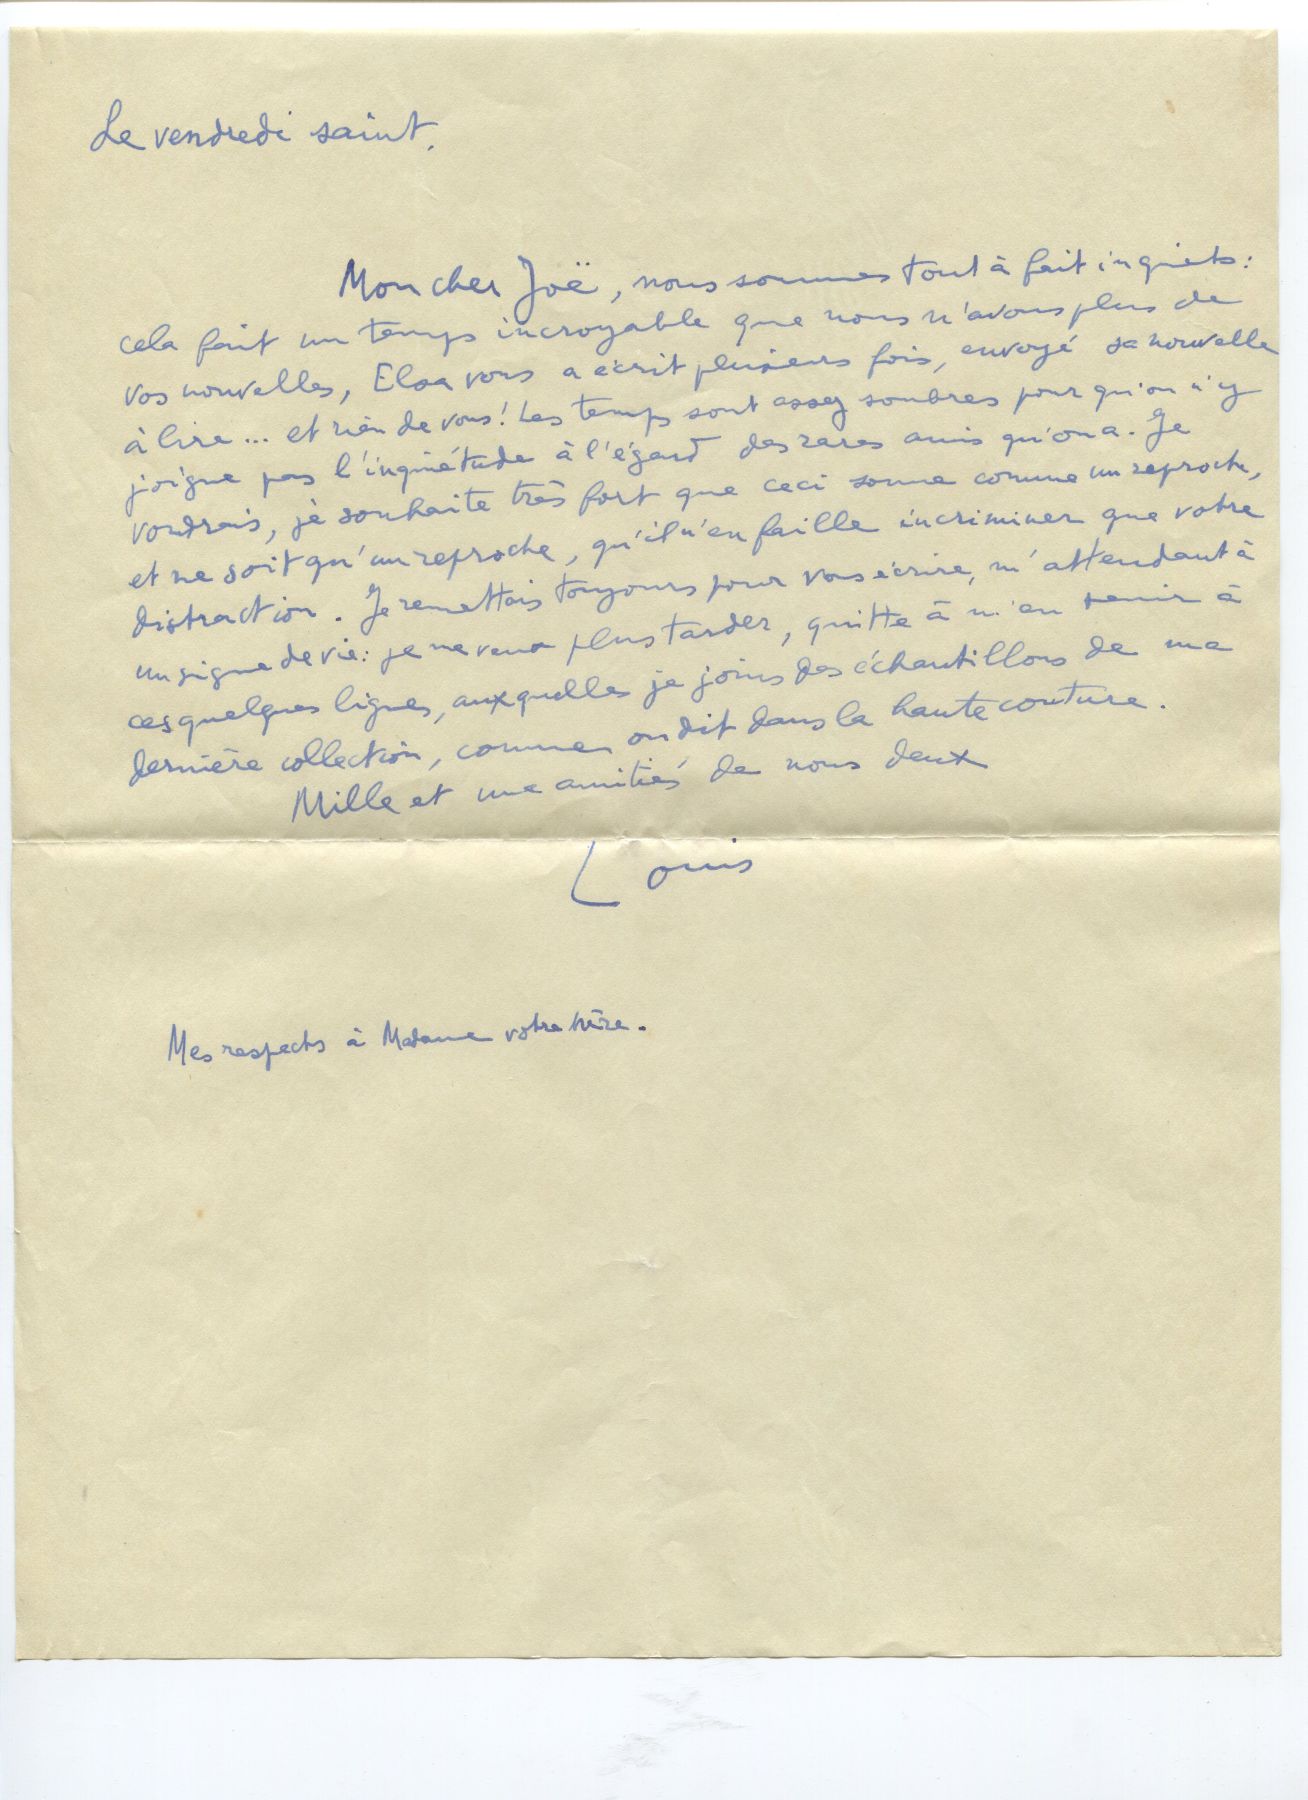 Le vendredi saint.
Mon cher Joë, nous sommes tout à fait inquiets :
cela fait un temps incroyable que nous n'avons plus de
vos nouvelles, Elsa vous a écrit plusieurs fois, envoyé sa nouvelle
à lire ... et rien de vous ! Les temps sont assez sombres pour qu'on n'y
joigne pas l'inquiétude à l'égard des rares amis qu'on a. Je
voudrais, je souhaite très fort que ceci sonne comme un reproche,
et ne soit qu'un reproche, qu'il n'en faille incriminer que votre
distraction. Je remettais toujours pour vous écrire, m'attendant à
un signe de vie : je ne veux plus tarder, quitte à m'en tenir à
ces quelques lignes, auxquelles je joins des échantillons de ma
dernière collection, comme on dit dans la haute couture.
Mille et une amitiés de nous deux
Louis
Mes respects à Madame votre mère.